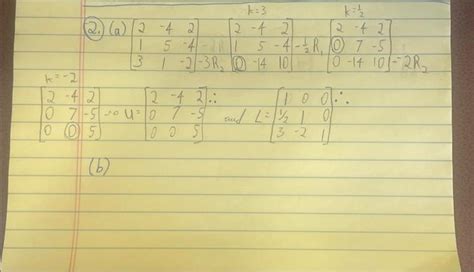 k=3 k=½
2. (a) [2 -4 2; 1 5 -4; 3 1 -2] -3R₂ [2 -4 2; 1 5 -4; 0 -14 10] -½R₁ [2 -4 2; 0 7 -5; 0 -14 10] -2R₂
k=-2
[2 -4 2; 0 7 -5; 0 0 5] → U= [2 -4 2; 0 7 -5; 0 0 5] ∴ and L= [1 0 0; ½ 1 0; 3 -2 1] ∴
(b)